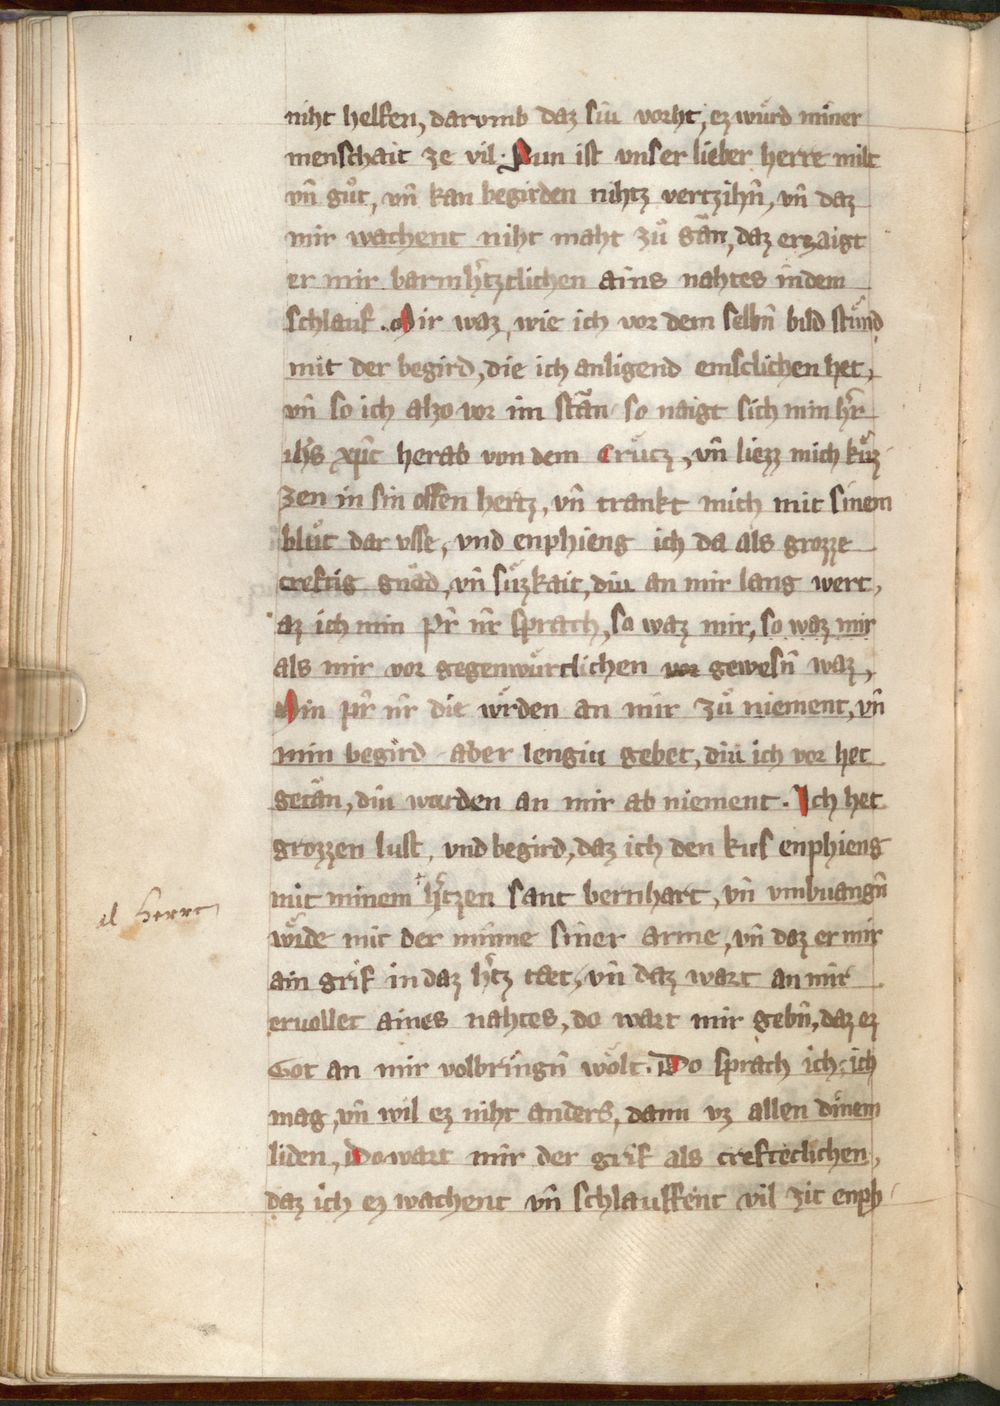 niht helfen, darvmb daz siu vorht, ez wuͤrd miner
menschait ze vil. Nun ist vnser lieber herre milt
vn̄ guͦt, vn̄ kan begirden nihtz vertzihn̄, vn̄ daz
mir wachent niht maht zuͦ gān, daz erzaigt
er mir barmh̄tzclichen ains nahtes indem
schlauf. Mir waz, wie ich vor dem selbn̄ bild stuͤnd
mit der begird, die ich anligend emsclichen het,
vn̄ so ich alzo vor im stān so naigt sich min h̄r
ih̄s xp̄c herab von dem Cruͤtz, vn̄ liezz mich kuͤz
zen in sin offen hertz, vn̄ trankt mich mit sinem
bluͦt dar vsse, vnd enphieng ich da als grozze
creftig gnād, vn̄ suͤzkait, diu an mir lang wert,
az ich min pr̄ nr̄ sprach, so waz mir, so waz mir
als mir vor gegenwuͤrtlichen vor gewesn̄ waz,
Min pr̄ nr̄ die wͤrden an mir zuͦ niement, vn̄
min begird aber lengiu gebet, diu ich vor het
getān, diu wurden an mir ab niement. Ich het
grozzen lust, vnd begird, daz ich den kus enphieng
mit minem + h̄tzen sant bernhart, vn̄ vmbuangn̄
wͤrde mit der minne siner arme, vn̄ daz er mir
ain grif in daz h̄tz tæt, vn̄ daz wart an mir
eruollet aines nahtes, do wart mir gebn̄, daz ez
Got an mir volbringn̄ woͤlt. Do sprach ich, ich
mag, vn̄ wil ez niht anders, dann vz allen dinem
liden, Do wart mir der grif als crefteclichen,
daz ich ez wachent vn̄ schlauffent vil zit enph
al herre